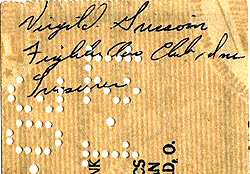 Virgil Grissom
Fighter Pro Club, Inc
Treasurer
NK
CS
AN
D, O.